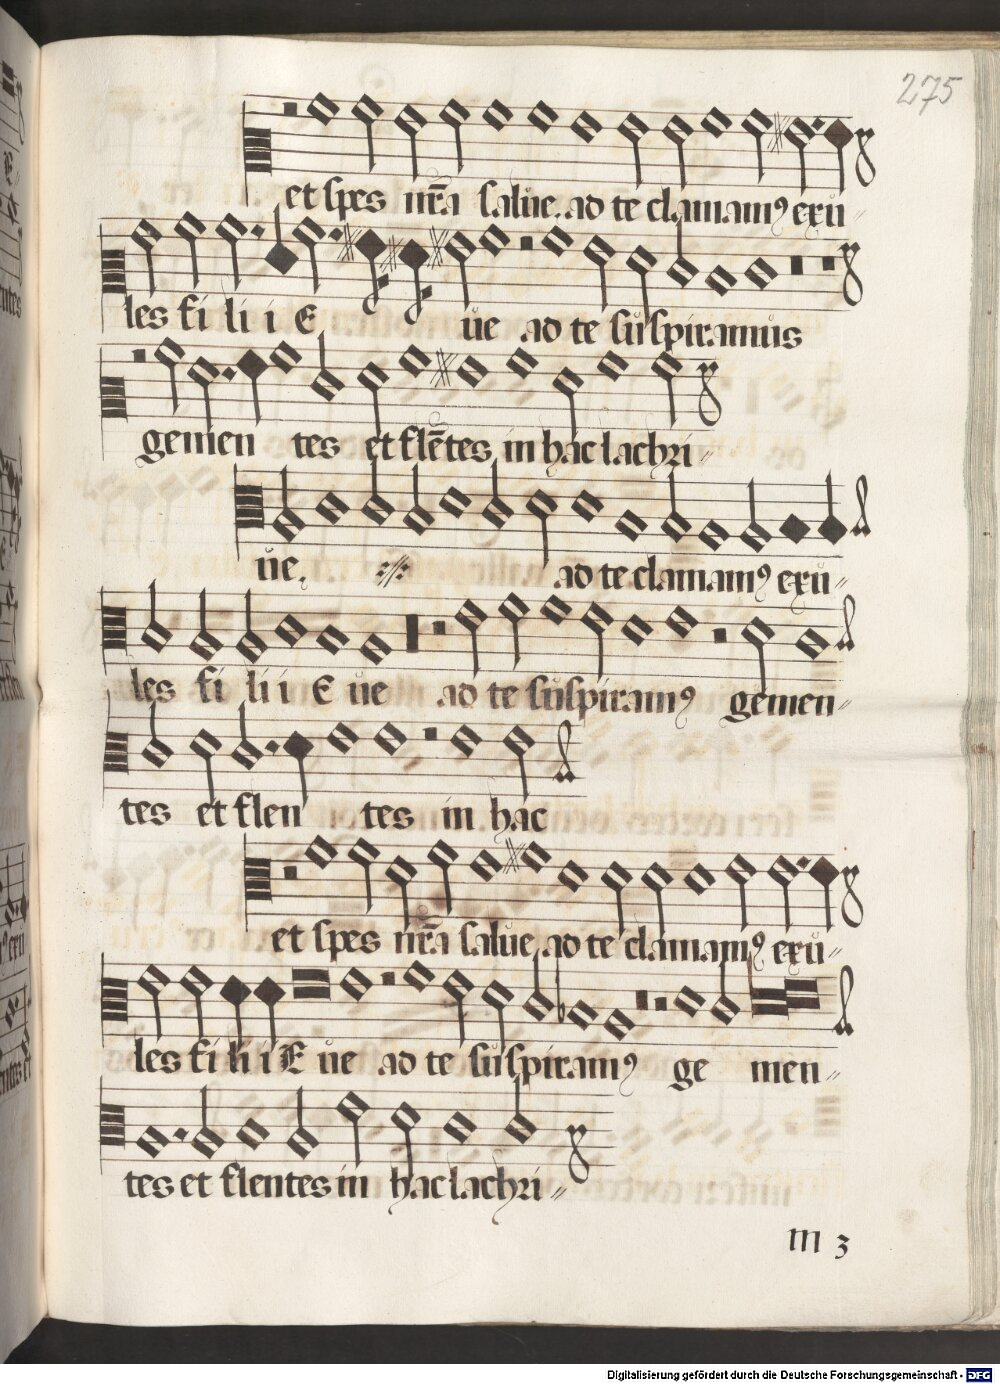 275
et spes nr̄a salue. ad te clamamꝰ exu
les fi li i E ue ad te suspiramus
gemen tes et flētes in hac lachri〃
ue. ad te clamamꝰ exu〃
les fi li i E ue ad te suspiramꝰ gemen〃
tes et flen tes in hac
et spes nr̄a salue ad te clamamꝰ exu〃
les fi li i E ue ad te suspiramꝰ ge men〃
tes et flentes in hac lachri〃
m 3
Digitalisierung gefördert durch die Deutsche Forschungsgemeinschaft - DFG